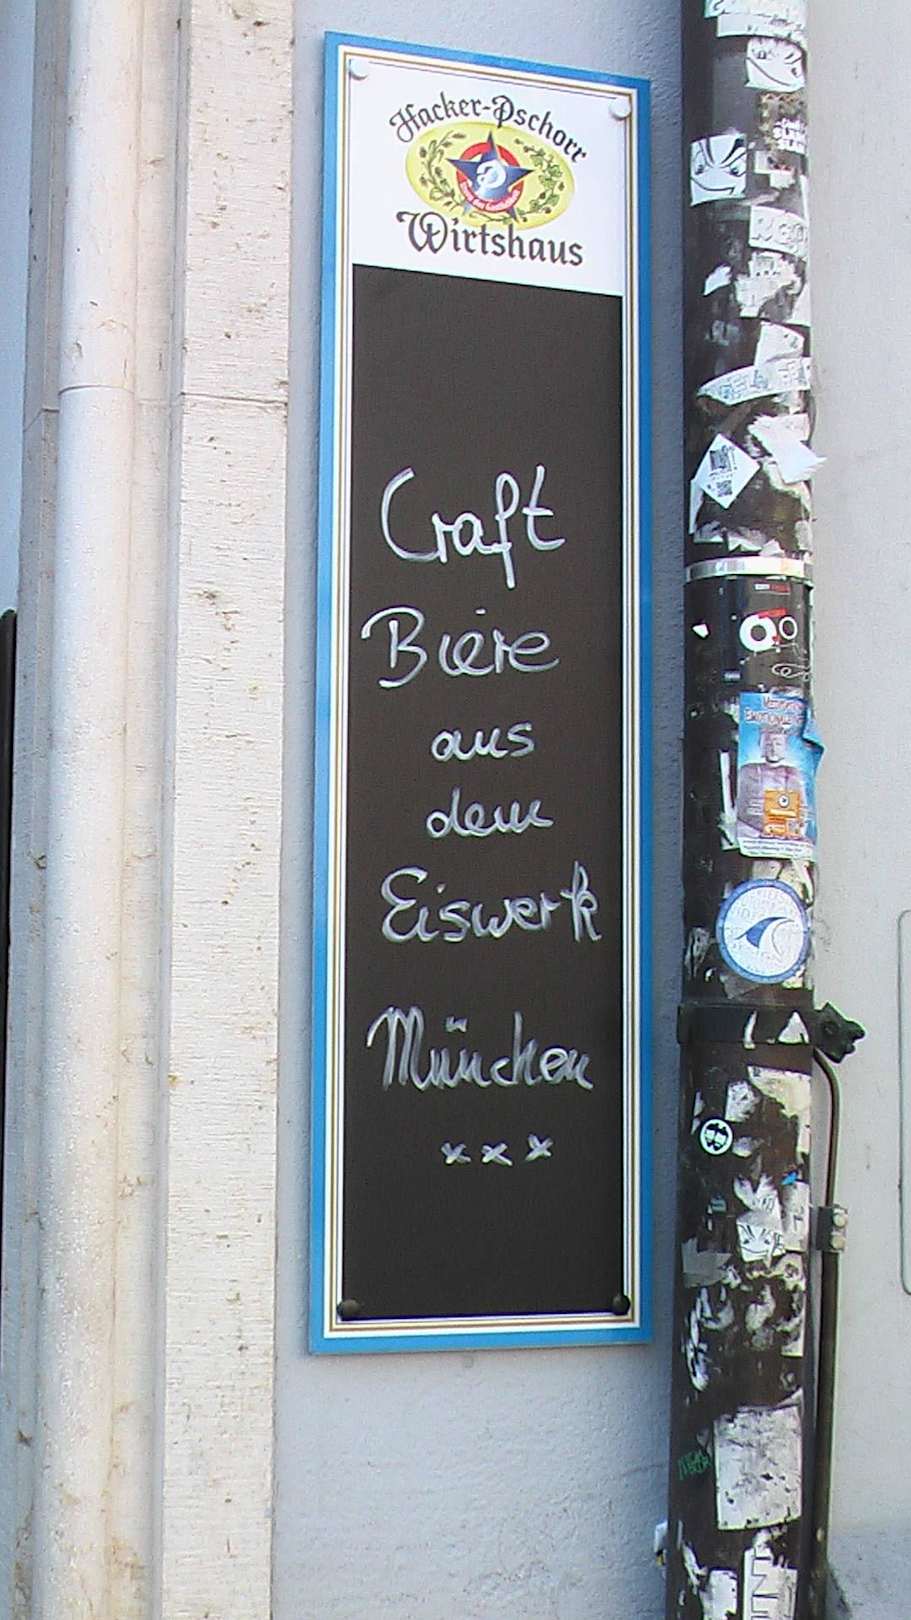 Hacker-Pschorr
Wirtshaus
Craft
Biere
aus
dem
Eiswerk
München
x x x